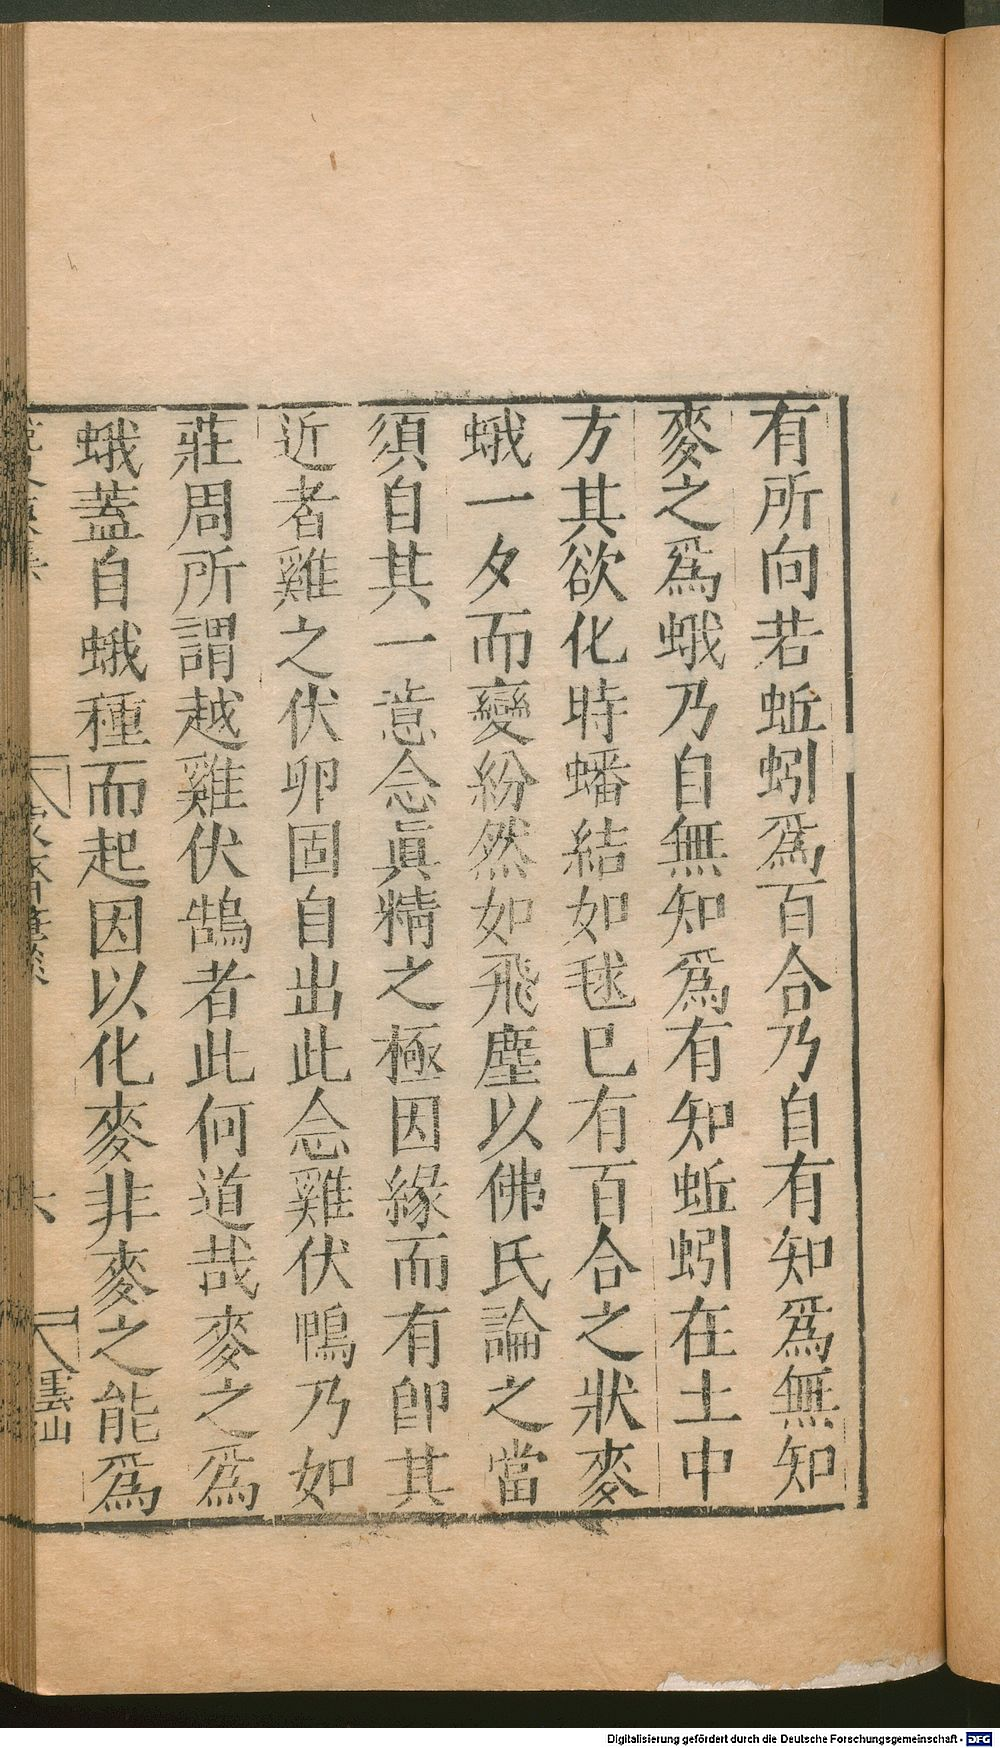 有所向若蚯蚓爲百合乃自有知爲無知
麥之爲蛾乃自無知爲有知蚯蚓在土中
方其欲化時蟠結如毬已有百合之狀麥
蛾一夕而變紛然如飛塵以佛氏論之當
須自其一意念眞精之極因緣而有卽其
近者雞之伏卵固自出此念雞伏鴨乃如
莊周所謂越雞伏鵠者此何道哉麥之爲
蛾蓋自蛾種而起因以化麥非麥之能爲
六
雲山
Digitalisierung gefördert durch die Deutsche Forschungsgemeinschaft - DFG